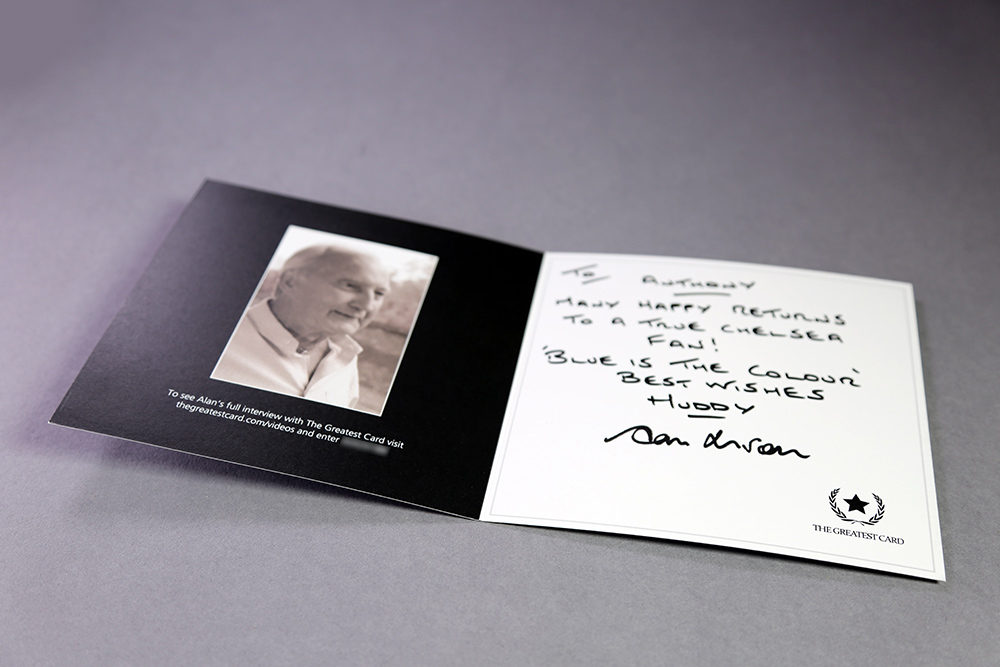 To see Alan's full interview with The Greatest Card visit
thegreatestcard.com/videos and enter
TO ANTHONY
MANY HAPPY RETURNS
TO A TRUE CHELSEA
FAN!
'BLUE IS THE COLOUR'
BEST WISHES
HUDDY
THE GREATEST CARD